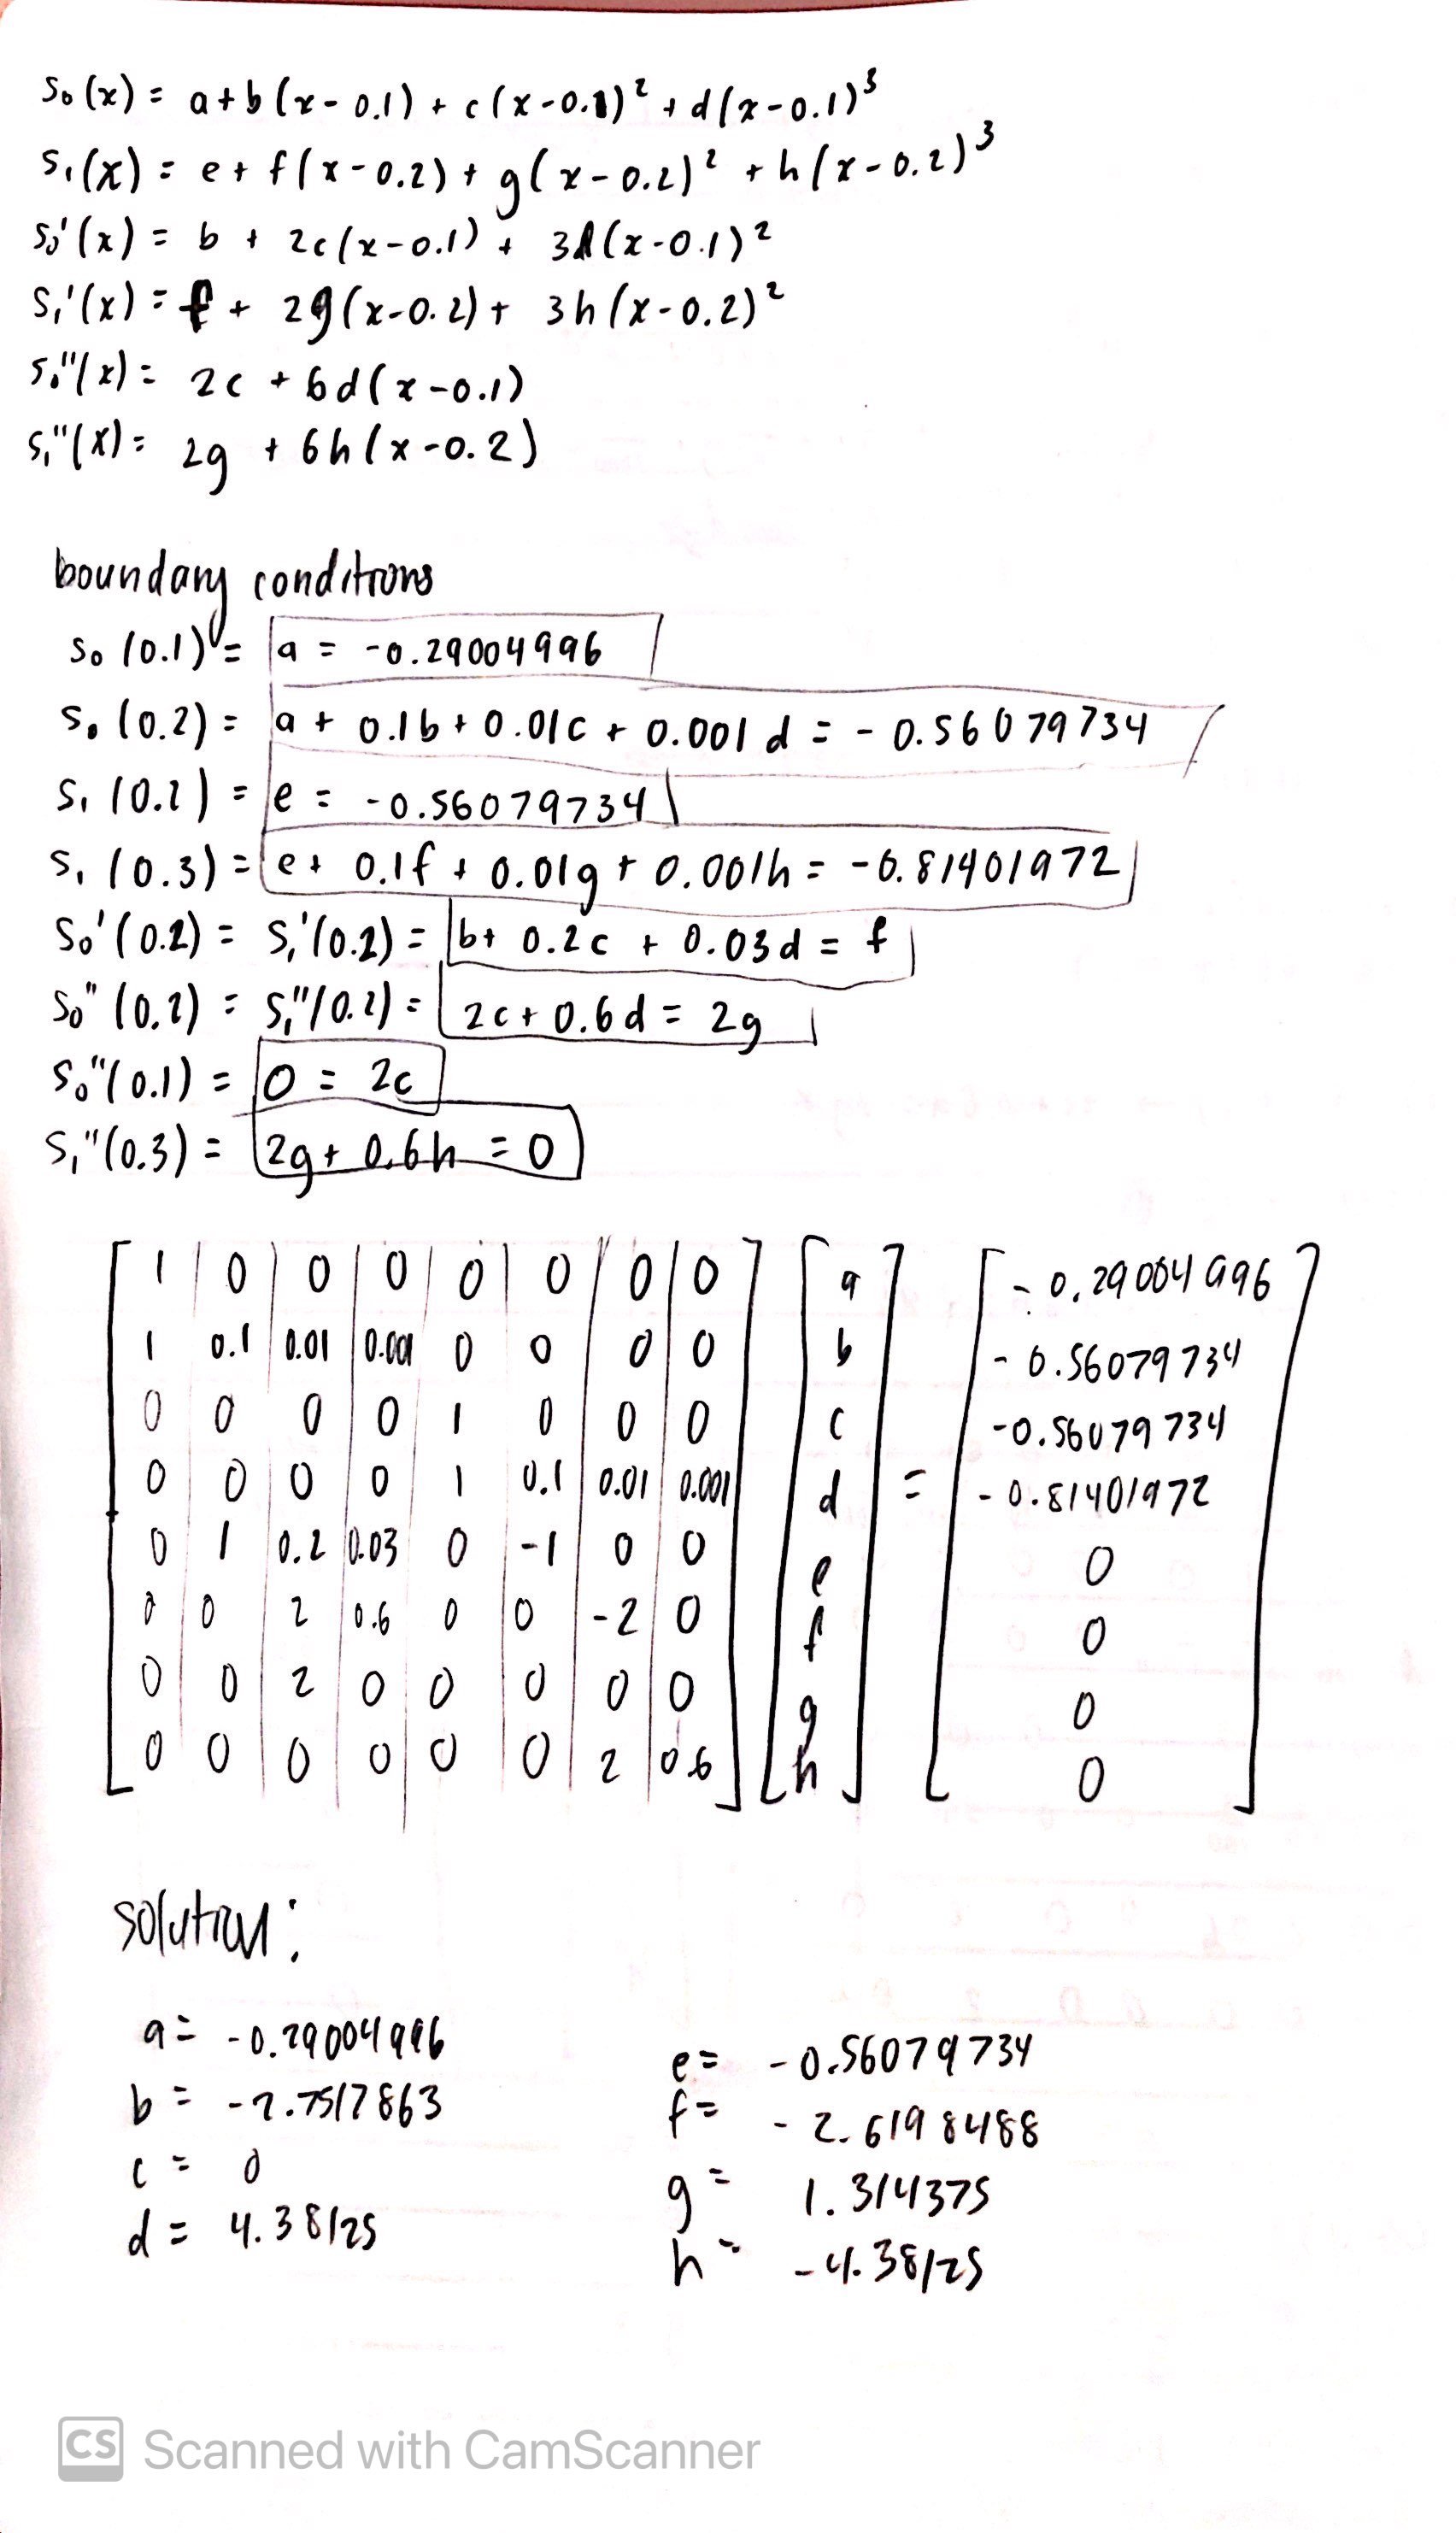 s₀(x) = a+b(x-0.1) + c(x-0.1)² + d(x-0.1)³
s₁(x) = e + f(x-0.2) + g(x-0.2)² + h(x-0.2)³
s₀'(x) = b + 2c(x-0.1) + 3d(x-0.1)²
s₁'(x) = f + 2g(x-0.2) + 3h(x-0.2)²
s₀''(x) = 2c + 6d(x-0.1)
s₁''(x) = 2g + 6h(x-0.2)
boundary conditions
s₀(0.1) = a = -0.29004996
s₀(0.2) = a + 0.1b + 0.01c + 0.001d = -0.56079734
s₁(0.2) = e = -0.56079734
s₁(0.3) = e + 0.1f + 0.01g + 0.001h = -0.81401972
s₀'(0.2) = s₁'(0.2) = b + 0.2c + 0.03d = f
s₀''(0.2) = s₁''(0.2) = 2c + 0.6d = 2g
s₀''(0.1) = 0 = 2c
s₁''(0.3) = 2g + 0.6h = 0
1 0 0 0 0 0 0 0 a -0.29004996
1 0.1 0.01 0.001 0 0 0 0 b -0.56079734
0 0 0 0 1 0 0 0 c -0.56079734
0 0 0 0 1 0.1 0.01 0.001 d = -0.81401972
0 1 0.2 0.03 0 -1 0 0 e 0
0 0 2 0.6 0 0 -2 0 f 0
0 0 2 0 0 0 0 0 g 0
0 0 0 0 0 0 2 0.6 h 0
solution:
a = -0.29004996
b = -2.7517863
c = 0
d = 4.38125
e = -0.56079734
f = -2.6198488
g = 1.314375
h = -4.38125
CS Scanned with CamScanner